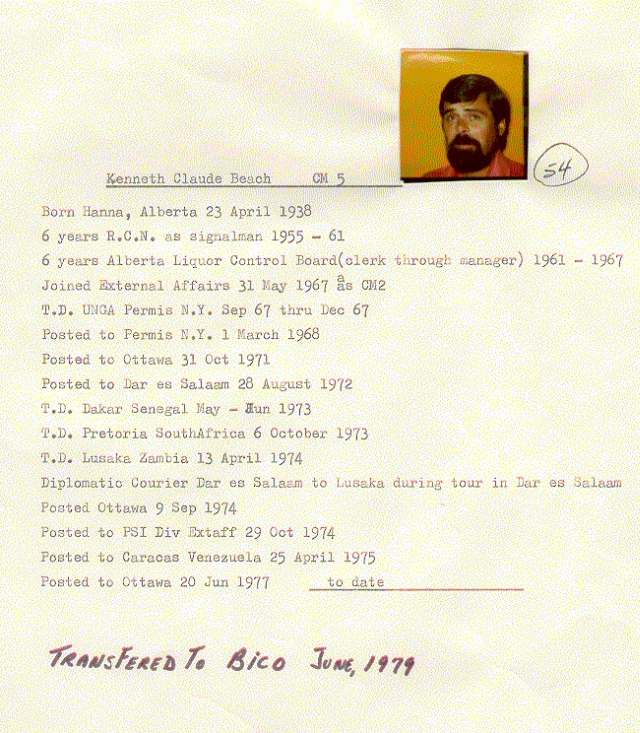 54
Kenneth Claude Beach CM 5
Born Hanna, Alberta 23 April 1938
6 years R.C.N. as signalman 1955 - 61
6 years Alberta Liquor Control Board(clerk through manager) 1961 - 1967
Joined External Affairs 31 May 1967 as CM2
T.D. UNGA Permis N.Y. Sep 67 thru Dec 67
Posted to Permis N.Y. 1 March 1968
Posted to Ottawa 31 Oct 1971
Posted to Dar es Salaam 28 August 1972
T.D. Dakar Senegal May - Jun 1973
T.D. Pretoria SouthAfrica 6 October 1973
T.D. Lusaka Zambia 13 April 1974
Diplomatic Courier Dar es Salaam to Lusaka during tour in Dar es Salaam
Posted Ottawa 9 Sep 1974
Posted to PSI Div Extaff 29 Oct 1974
Posted to Caracas Venezuela 25 April 1975
Posted to Ottawa 20 Jun 1977 to date
TRANSFERED TO BICO JUNE, 1979